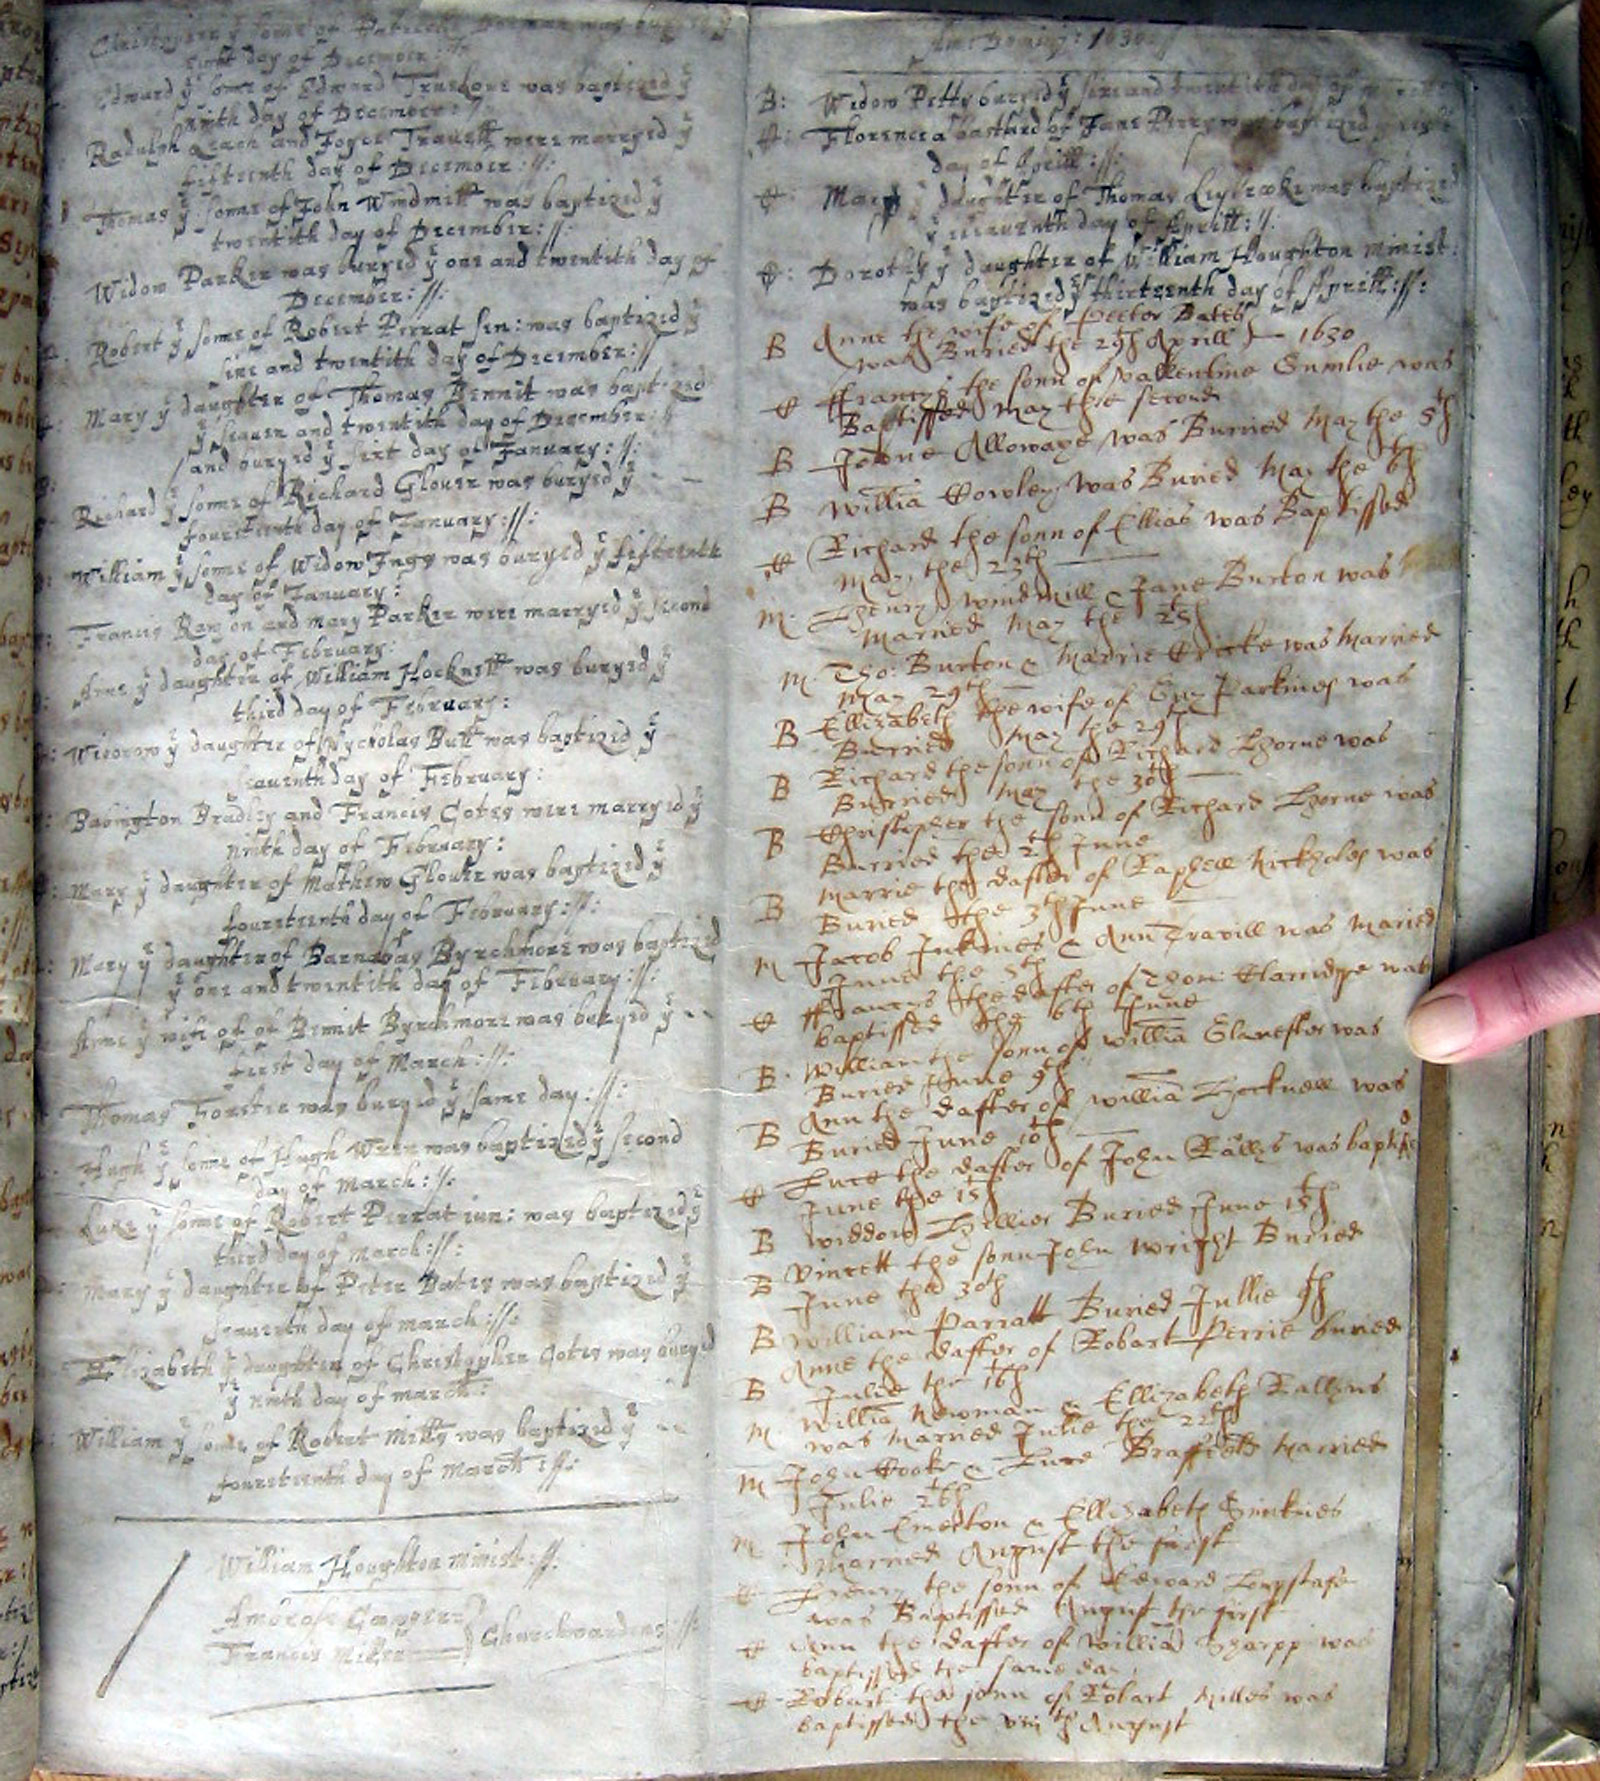 Christopher ÿ sonne of Patricke was buryed ÿ
first day of December
Edward ÿ sonne of Edward Truelove was baptized ÿ
ninth day of December:
Radulph Leach and Joyce Travell were marryed ÿ
fifteenth day of December://:
Thomas ÿ sonne of John Windmill was baptized ÿ
twentith day of December://:
Widow Parker was buryed ÿ one and twentith day of
December://:
Robert ÿ sonne of Robert Perrat sen: was baptized ÿ
and twentith day of December://
Mary ÿ daughter of Thomas Bennit was baptized
ÿ seaven and twentith day of December:
and buryed ÿ sixt day of January://:
Richard ÿ sonne of Richard Glover was buryed ÿ
fourteenth day of January://:
William ÿ sonne of Widow Ings was buryed ÿ fifteenth
day of January:
Francis and Mary Parker were marryed ÿ second
day of February:
Anne ÿ daughter of William Hocknell was buryed ÿ
third day of February:
ÿ daughter of Nycholas Bull was baptized ÿ
seaventh day of February:
Babington Bradley and Francis Cotes were marryed ÿ
ninth day of February:
Mary ÿ daughter of Mathew Glover was baptized ÿ
fourteenth day of February://:
Mary ÿ daughter of Barnabas Byrchmore was baptized
ÿ one and twentith day of February://:
Anne ÿ wife of of Bennit Byrchmore was buryed ÿ
first day of March://:
Thomas Forster was buryed ÿ same day://:
Hugh ÿ sonne of Hugh was baptized ÿ second
day of March://:
Luke ÿ sonne of Robert Perrat iun: was baptized ÿ
third day of March://:
Mary ÿ daughter of Peter Bates was baptized ÿ
seaventh day of march://:
Elizabeth ÿ daughter of Christopher Cotes was buryed
ÿ ninth day of march:
William ÿ sonne of Robert Mills was baptized ÿ
fourteenth day of March://:
William Houghton minist://:
Ambrose
Francis Miller Churchwardens://:
Anno Domini: 1630
B: Widow Petty buryed ÿ and twentith day of
Florence a bastard of Jane Perry was baptized ÿ
day of Aprill://:
Mary ÿ daughter of Thomas was baptized
ÿ eleaventh day of Aprill:/.
Dorothy ÿ daughter of William Houghton minist:
was baptized ÿ thirteenth day of Aprill://:
B Anne the wife of Peetor Bates
was Buried the 29th Aprill 1630
C ffrancys the sonn of Vallentine was
Baptissed May the second
B Joane Allowaye was Buried May the 5th
B Willia Cowley was Buried May the 6th
C Richard the sonn of Ellias was Baptissed
May the 23th
M. Henry Windmill & Jane Burton was
Married May the 25th
M. Tho: Burton & Marrie was Married
May 29th
B Ellizabeth the wife of Parkines was
Burried May the 29th
B Richard the sonn of Richard Horne was
Burried May the 30th
B Christopher the sonn of Richard Horne was
Burried the 2th June
B Marrie the dafter of Raphell Nickholes was
Buried the 3th June
M Jacob Jinkines & Ann Travill was Maried
June the 5th
C ffrances the dafter of Claridge was
baptissed the 6th June
B. William the sonn of Willia was
Buried June 9th
B Ann the dafter of Willia Hocknell was
Buried June 10th
C Luce the dafter of John was baptised
June the 15th
B widdow Hillier Buried June 18th
B Vincett the sonn John Wright Buried
June the 30th
B William Parratt Buried Jullie 9th
B Anne the dafter of Robart Perrie buried
Julie the 16th
M. Willia Newman & Ellizabeth
was Married Julie the 22th
M John Cooke & Luce Married
Julie 26th
M John & Ellizabeth
Married August the first
C Henry the sonn of Edward
was Baptissed August the first
C Ann the dafter of Willia Sharpp was
baptissed the same day
C Robart the sonn of Robart Milles was
baptissed the viii th August